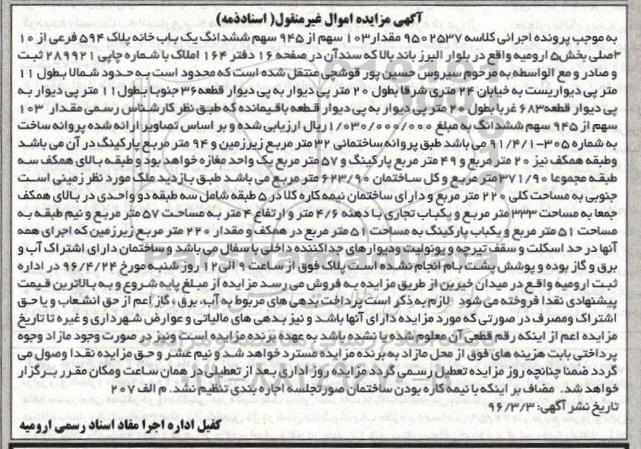 آگهی مزایده اموال غیرمنقول( اسنادذمه)
به موجب پرونده اجرائی کلاسه ۹۵۰۲۵۳۷ مقدار۱۰۳ سهم از ۹۴۵ سهم ششدانگ یک باب خانه پلاک ۵۹۴ فرعی از ۱۰
۳اصلی بخش۵ ارومیه واقع در بلوار البرز باند بالا که سندآن در صفحه ۱۶ دفتر ۱۶۴ املاک با شماره چاپی ۲۸۹۹۲۱ ثبت
و صادر و مع الواسطه به مرحوم سیروس حسین پور قوشچی منتقل شده است که محدود است به حدود شمالا بطول ۱۱
متر پی دیواریست به خیابان ۲۴ متری شرقا بطول ۲۰ متر پی دیوار به پی دیوار قطعه۳۶ جنوبا بطول ۱۱ متر پی دیوار به
پی دیوار قطعه۶۸۳ غربا بطول ۲۰ متر پی دیوار به پی دیوار قطعه باقیمانده که طبق نظر کارشناس رسمی مقدار ۱۰۳
سهم از ۹۴۵ سهم ششدانگ به مبلغ ۱/۰۳۰/۰۰۰/۰۰۰ریال ارزیابی شده و بر اساس تصاویر ارائه شده پروانه ساخت
به شماره ۳۰۵-۹۱/۴/۱ می باشد طبق پروانه ساختمانی ۳۲ متر مربع زیرزمین و ۹۴ متر مربع پارکینگ در آن می باشد
وطبقه همکف نیز ۲۰ متر مربع و ۴۹ متر مربع پارکینگ و ۵۷ متر مربع یک واحد مغازه خواهد بود و طبقه بالای همکف سه
طبقه مجموعا ۳۷۱/۹۰ متر مربع و کل ساختمان ۶۲۳/۹۰ متر مربع می باشد طبق بازدید ملک مورد نظر زمینی است
جنوبی به مساحت کلی ۲۲۰ متر مربع و دارای ساختمان نیمه کاره کلا در ۵ طبقه شامل سه طبقه دو واحدی در بالای همکف
جمعا به مساحت ۳۳۳ متر مربع و یکباب تجاری با دهنه ۴/۶ متر و ارتفاع ۴ متر به مساحت ۵۷ متر مربع و نیم طبقه به
مساحت ۵۱ متر مربع و یکباب پارکینگ به مساحت ۵۱ متر مربع در همکف و مقدار ۲۲۰ متر مربع زیرزمین که اجرای همه
آنها در حد اسکلت و سقف تیرچه و یونولیت ودیوارهای جداکننده داخلی با سفال می باشد و ساختمان دارای اشتراک آب و
برق و گاز بوده و پوشش پشت بام انجام نشده است پلاک فوق از ساعت ۹ الی ۱۲ روز شنبه مورخ ۹۶/۴/۲۴ در اداره
ثبت ارومیه واقع در میدان خیرین از طریق مزایده به فروش می رسد مزایده از مبلغ پایه شروع و به بالاترین قیمت
پیشنهادی نقدا فروخته می شود لازم به ذکر است پرداخت بدهی های مربوط به آب، برق ، گاز اعم از حق انشعاب و یا حق
اشتراک ومصرف در صورتی که مورد مزایده دارای آنها باشد و نیز بدهی های مالیاتی و عوارض شهرداری و غیره تا تاریخ
مزایده اعم از اینکه رقم قطعی آن معلوم شده یا نشده باشد به عهده برنده مزایده است ونیز در صورت وجود مازاد وجوه
پرداختی بابت هزینه های فوق از محل مازاد به برنده مزایده مسترد خواهد شد و نیم عشر و حق مزایده نقدا وصول می
گردد ضمنا چنانچه روز مزایده تعطیل رسمی گردد مزایده روز اداری بعد از تعطیلی در همان ساعت ومکان مقرر برگزار
خواهد شد. مضاف بر اینکه با نیمه کاره بودن ساختمان صورتجلسه اجاره بندی تنظیم نشد. م الف ۲۰۷
تاریخ نشر آگهی: ۹۶/۳/۳
کفیل اداره اجرا مفاد اسناد رسمی ارومیه